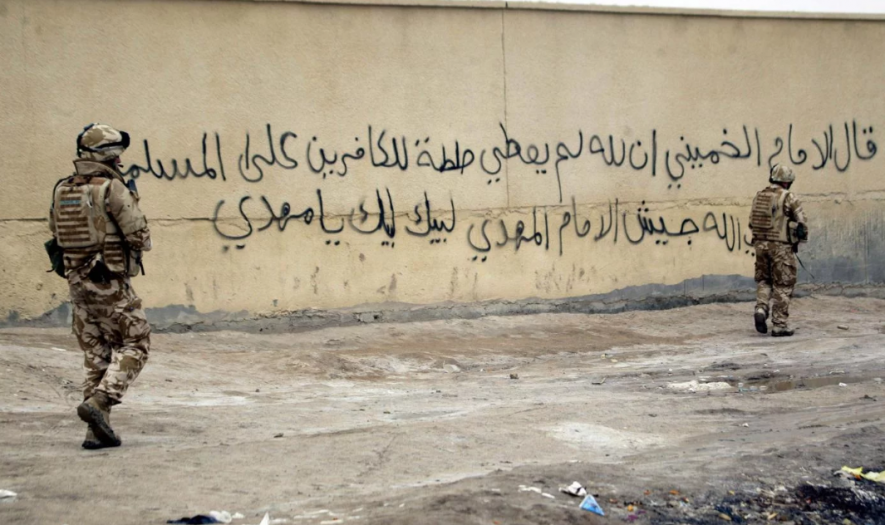 قال الامام الخميني ان لله لم يعطي طلطة للكافرين على المسلم
الله جيش الامام المهدي لبيك لبيك يا مهدي